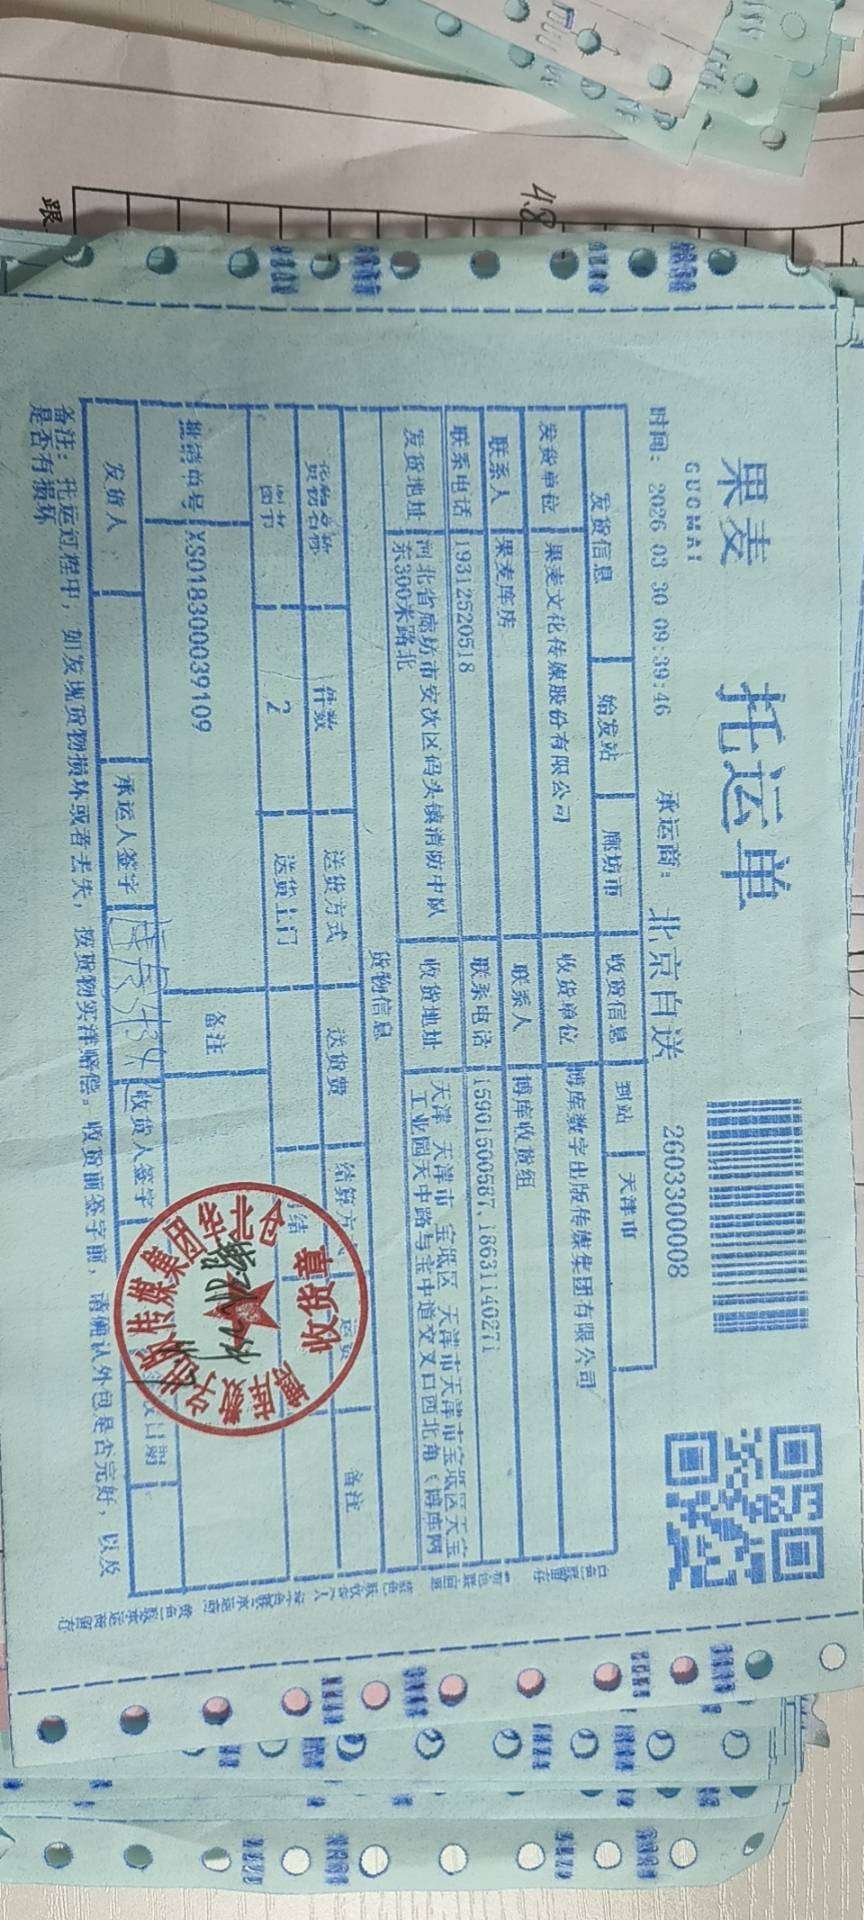 果麦
GUOMAI
托运单
时间: 2026 03 30 09:39:46 承运商: 北京自送 2603300008
发货信息 始发站 廊坊市 收货信息 到站 天津市
发货单位 果麦文化传媒股份有限公司 收货单位 博库数字出版传媒集团有限公司
联系人 果麦库房 联系人 博库收货组
联系电话 19312520518 联系电话 15901500587,18631140271
发货地址 河北省廊坊市安次区码头镇消防中队 收货地址 天津 天津市 宝坻区 天津市天津市宝坻区天宝
东300米路北 工业园天中路与宝中道交叉口西北角(博库网
货物信息
货物名称 件数 送货方式 送货费 结算方式 运费 备注
图书 2 送货上门
批销单号 XS018300039109 备注
发货人 承运人签字 收货人签字
备注: 托运过程中, 如发现货物损坏或者丢失, 按货物实洋赔偿。收货前签字前, 请确认外包是否完好, 以及
是否有损坏
收货章
48
跟